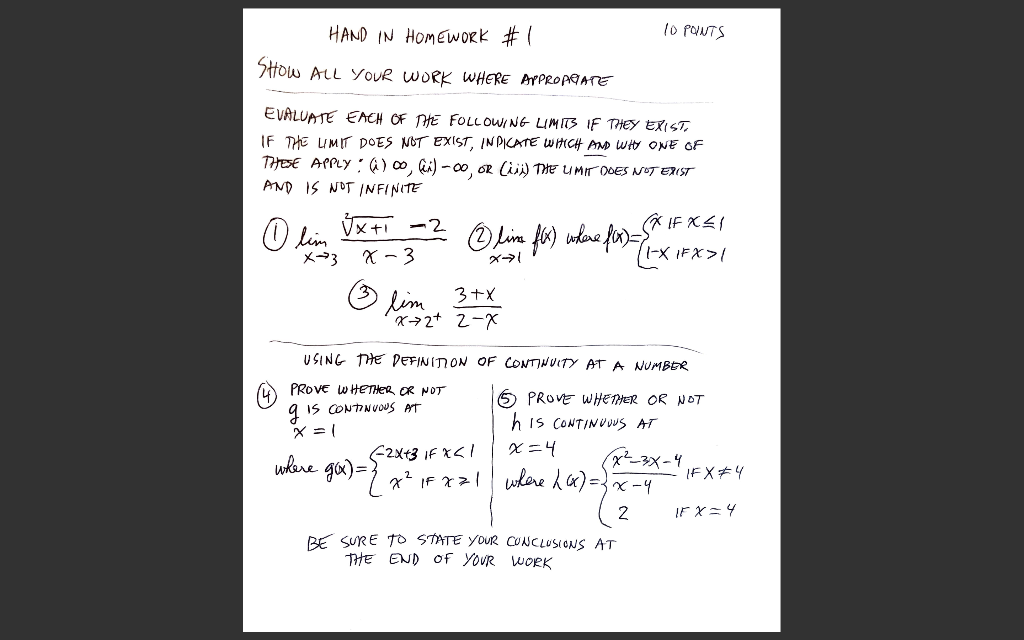 HAND IN HOMEWORK #1
10 POINTS
SHOW ALL YOUR WORK WHERE APPROPRIATE
EVALUATE EACH OF THE FOLLOWING LIMITS IF THEY EXIST.
IF THE LIMIT DOES NOT EXIST, INDICATE WHICH AND WHY ONE OF
THESE APPLY: (i) ∞, (ii) -∞, OR (iii) THE LIMIT DOES NOT EXIST
AND IS NOT INFINITE
① lim x→3 (²√(x+1) - 2)/(x - 3)
② lim x→1 f(x) where f(x) = { x IF x ≤ 1
1-x IF x > 1
③ lim x→2⁺ (3+x)/(2-x)
USING THE DEFINITION OF CONTINUITY AT A NUMBER
④ PROVE WHETHER OR NOT
g IS CONTINUOUS AT
x = 1
where g(x) = { -2x+3 IF x < 1
x² IF x ≥ 1
⑤ PROVE WHETHER OR NOT
h IS CONTINUOUS AT
x = 4
where h(x) = { (x²-3x-4)/(x-4) IF x ≠ 4
2 IF x = 4
BE SURE TO STATE YOUR CONCLUSIONS AT
THE END OF YOUR WORK